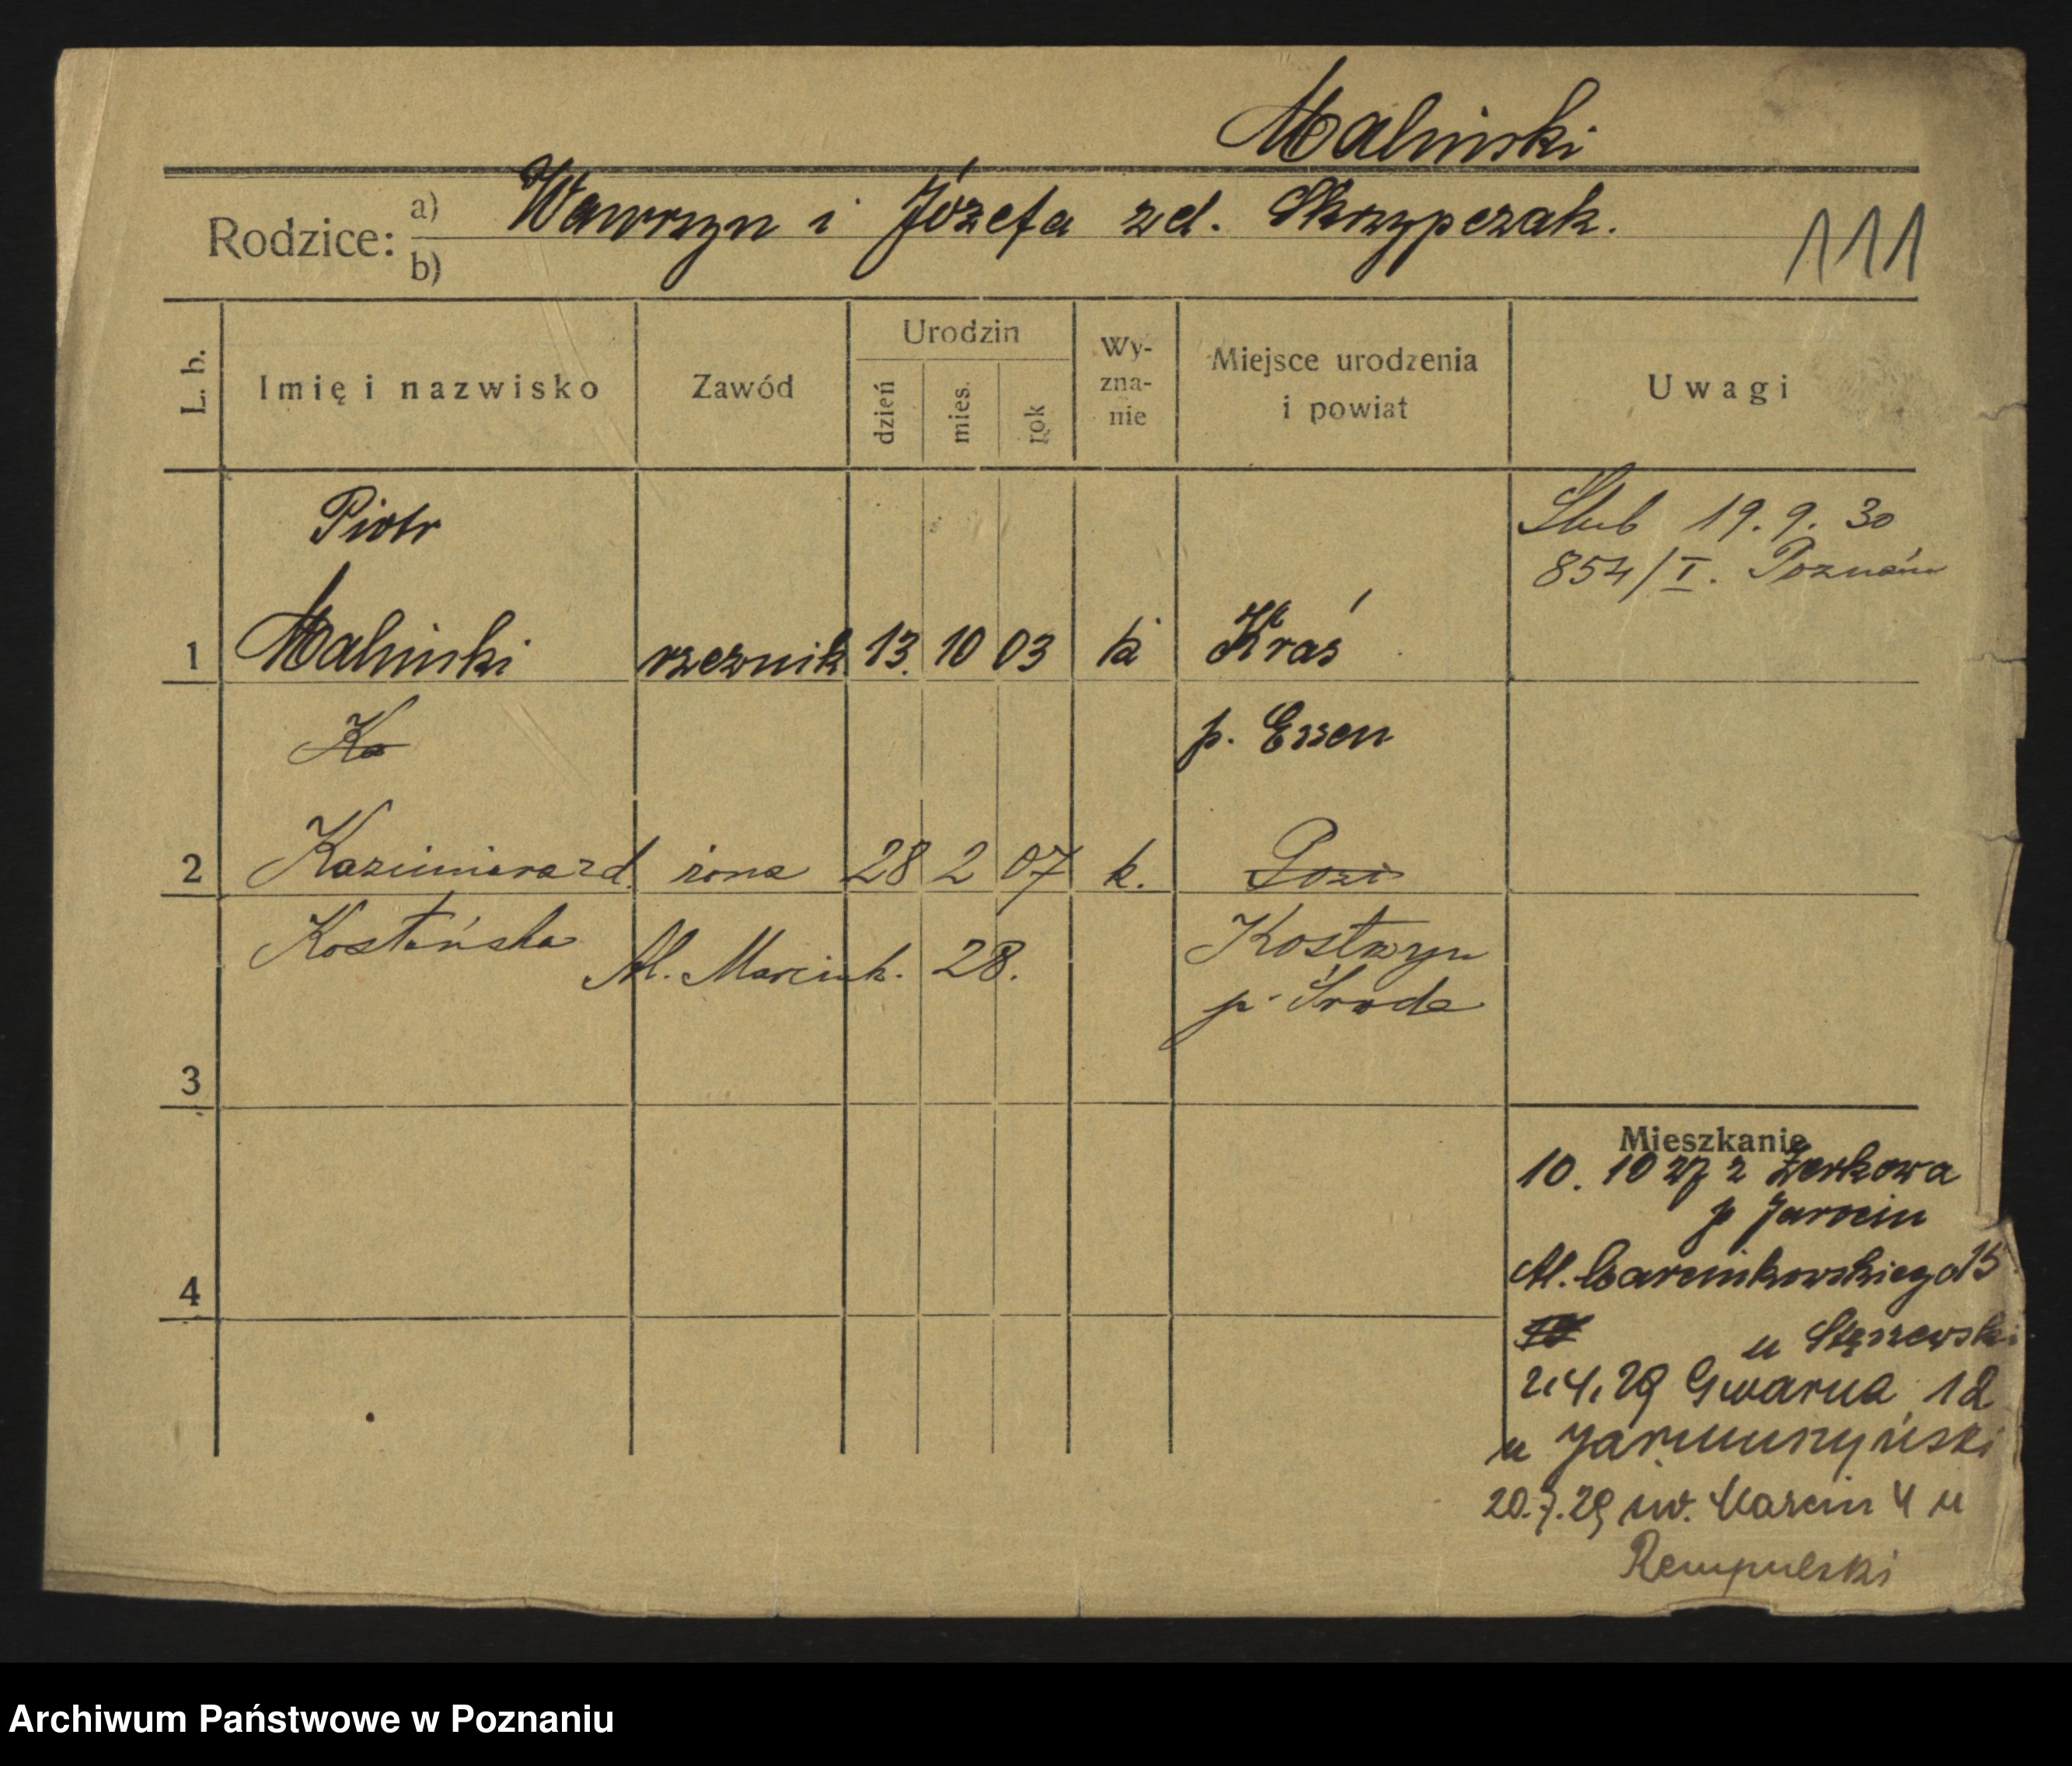 Maliński
Rodzice: a) Wawrzyn i Józefa zd. Skrzypczak.
b)
111
L. b.
Imię i nazwisko
Zawód
Urodzin
dzień
mies.
rok
Wy-
zna-
nie
Miejsce urodzenia
i powiat
Uwagi
Piotr
Ślub 19. 9. 30
854/I. Poznań
1 Maliński rzeznik 13. 10 03 k
Ka
p. Essen
2 Kazimiera zd. żona 28 2 07 k. Pozn
Kostańska Al. Marcink. 28. Kostrzyn
p. Środa
3
4
Mieszkanie
10. 10 27 z Żerkowa
p Jarocin
Al. Marcinkowskiego 15
u Stęszewski
2.4.29 Gwarna 12
u
20.7.29 św. Marcin 4 u